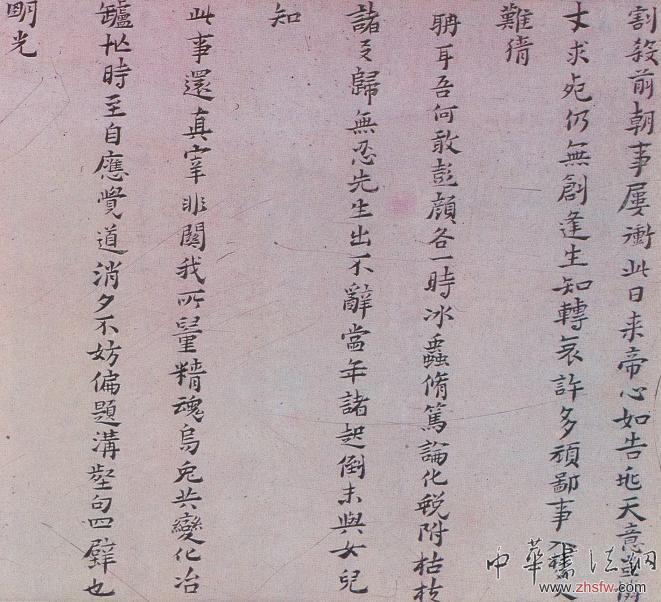 割發前朝事屢衝此日来帝心如告兆天意
丈求死仍無創逢生知轉哀許多頑鄙事
難猜
聃耳吾何敢彭顔各一時冰蟲脩篤論化蛻附枯枝
諸支歸無忍先生出不辭當年諸起倒未與女兒
知
此事還真宰非關我所量精魂烏兔共變化冶
鑪忙時至自應覺道消夕不妨偏題溝壑句四壁也
明光
中華書法網
www.zhsfw.com